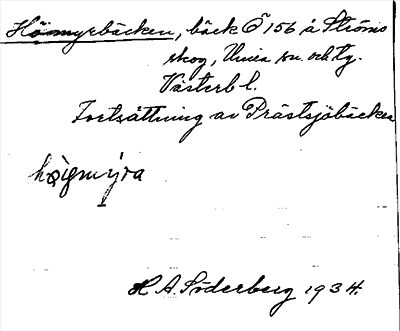 Högmyrbäcken, bäck Ö 156 å Ströms
skog, Umeå sn. och tg.
Västerb l.
Fortsättning av Prästsjöbäcken
högmyra
H A. Söderberg 1934.